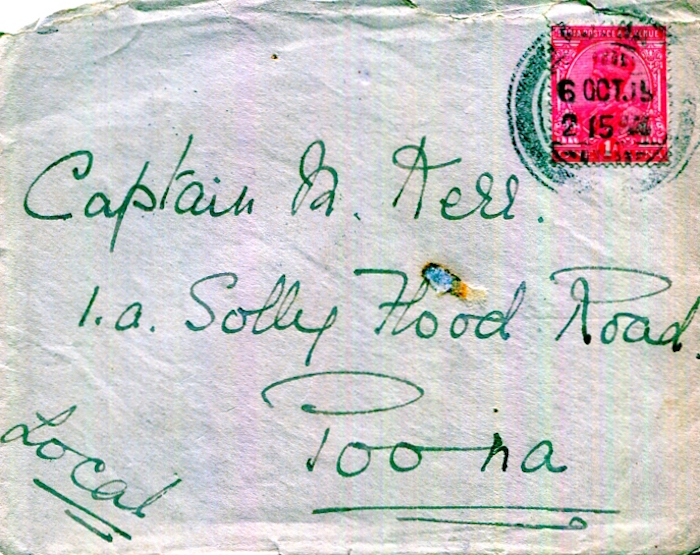 INDIA POSTAGE & REVENUE
6 OCT.15
2 15
Captain M. Kerr.
1.a. Solly Flood Road.
Poona
Local